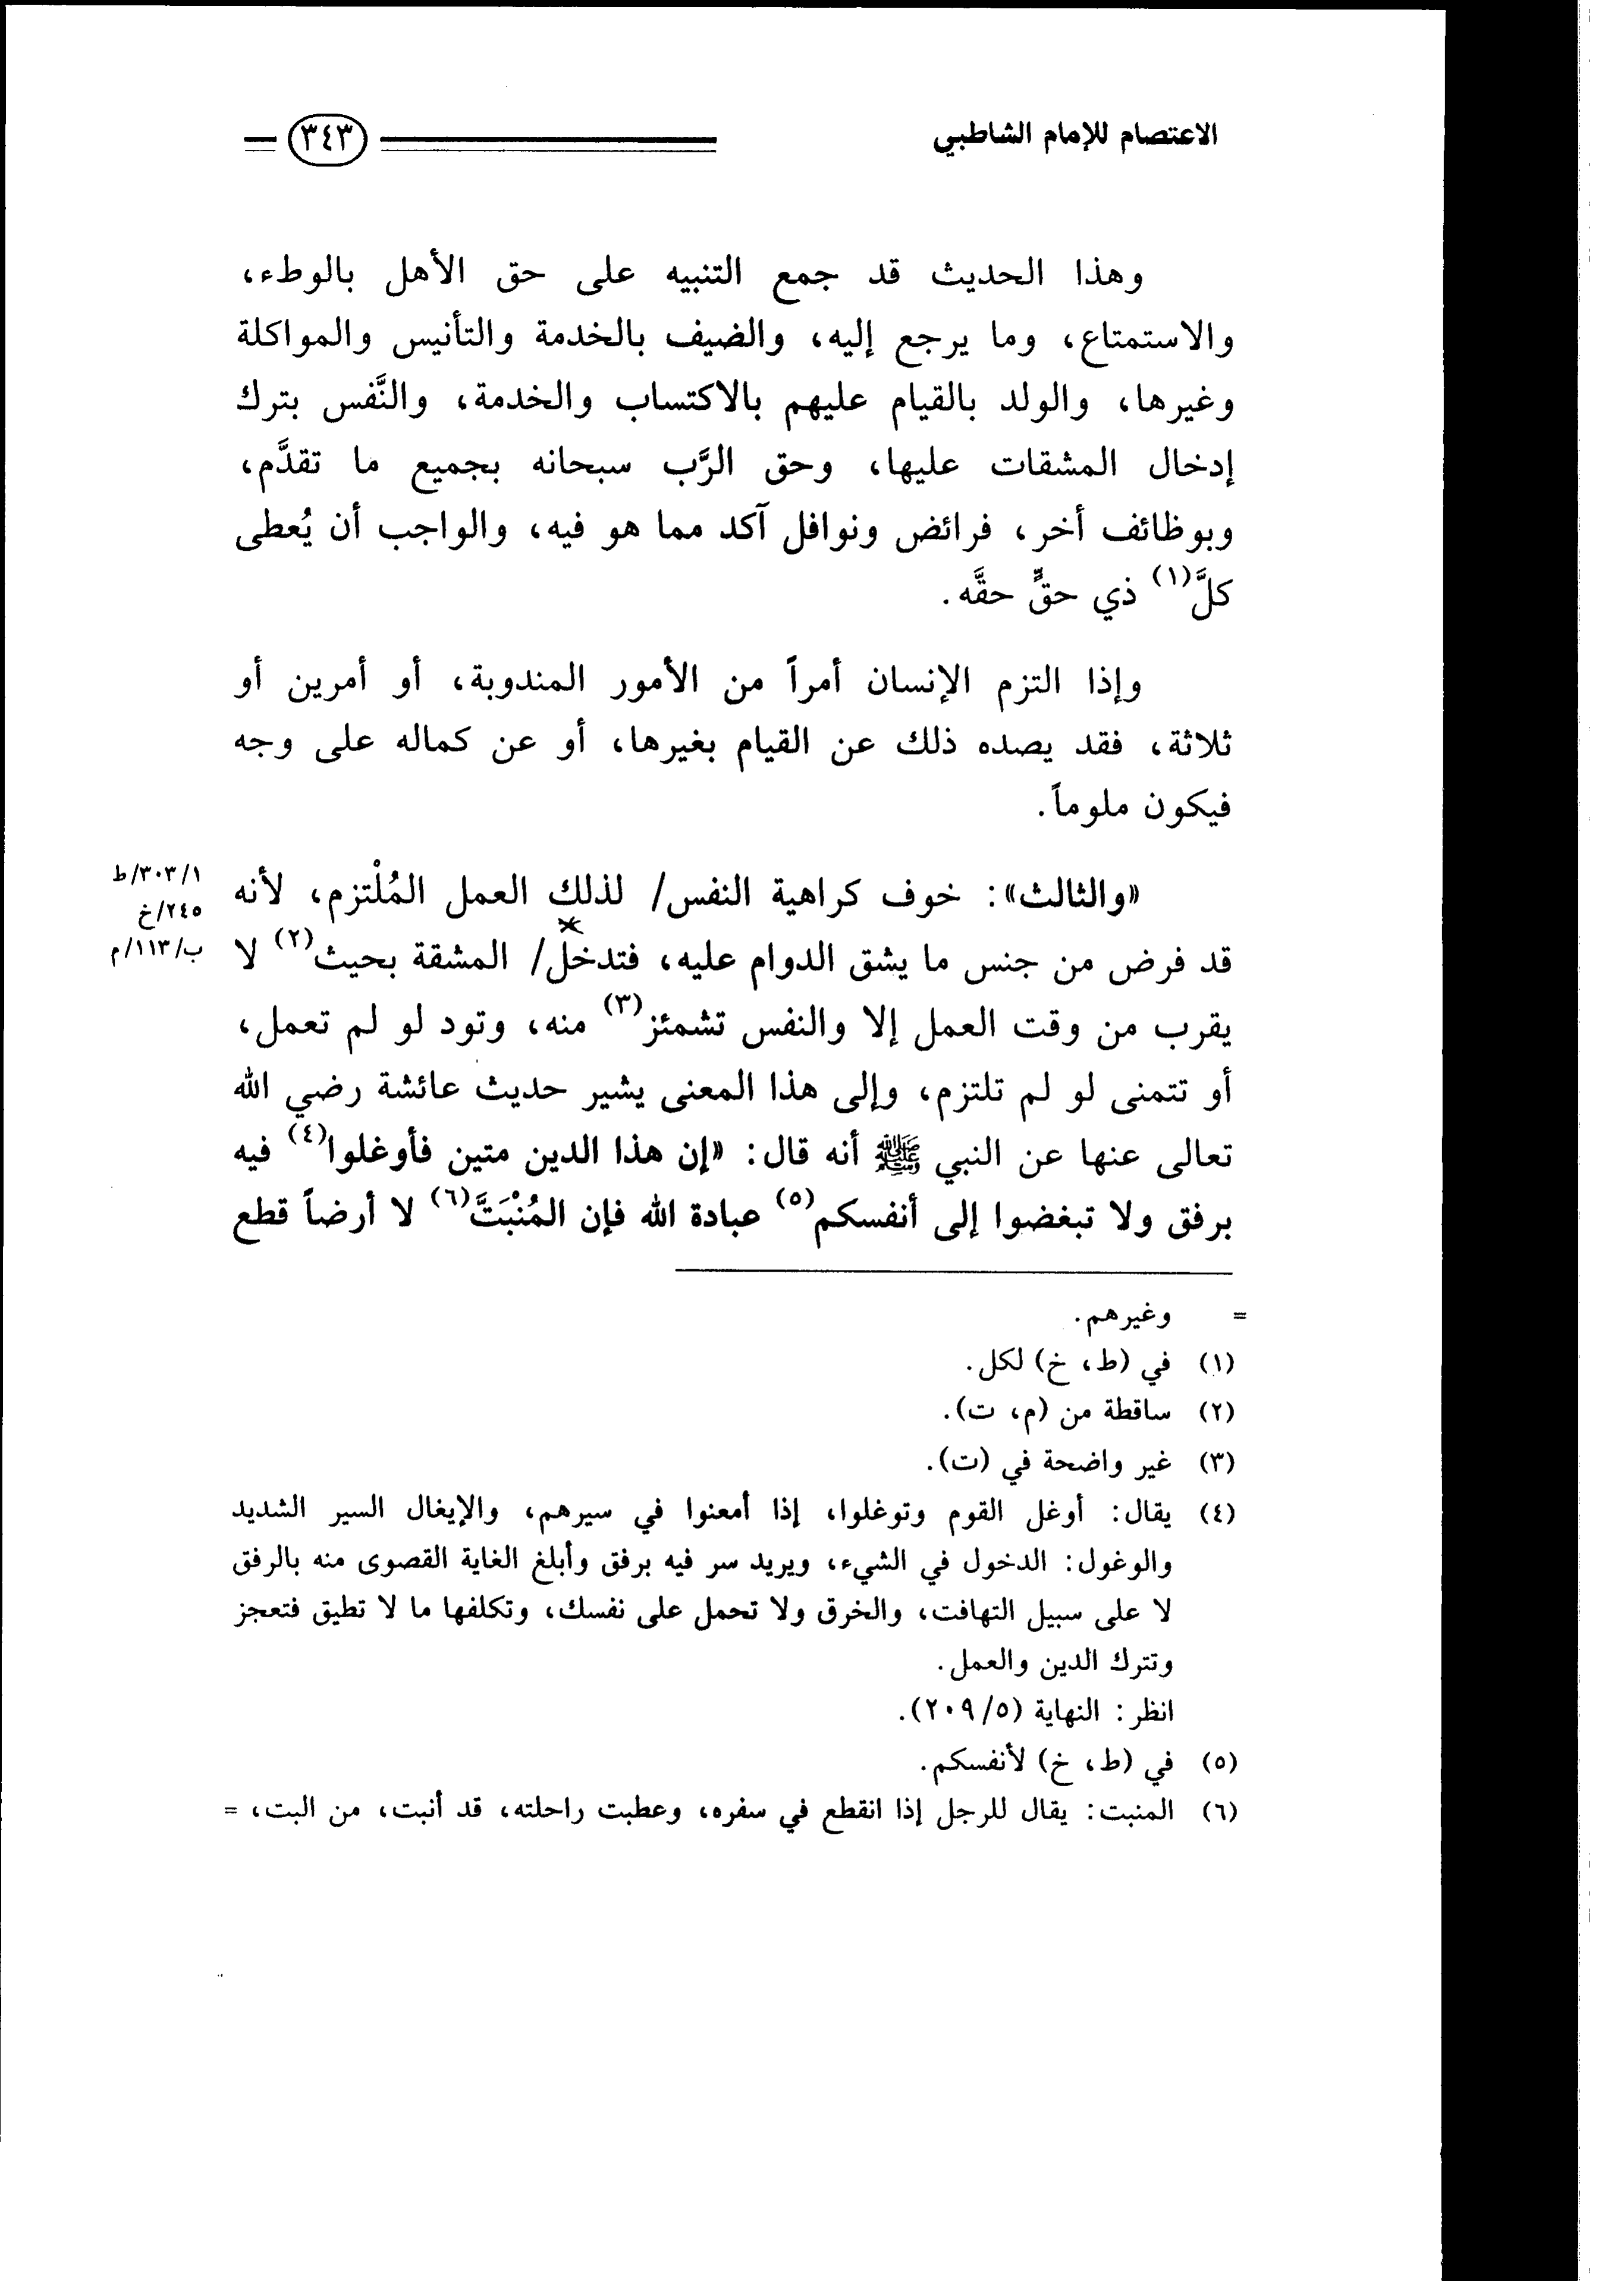 الاعتصام للإمام الشاطبي
٣٤٣
وهذا الحديث قد جمع التنبيه على حق الأهل بالوطء،
والاستمتاع، وما يرجع إليه، والضيف بالخدمة والتأنيس والمواكلة
وغيرها، والولد بالقيام عليهم بالاكتساب والخدمة، والنَّفس بترك
إدخال المشقات عليها، وحق الرَّب سبحانه بجميع ما تقدَّم،
وبوظائف أخر، فرائض ونوافل آكد مما هو فيه، والواجب أن يُعطى
كلَّ(١) ذي حقٍّ حقَّه.
وإذا التزم الإنسان أمراً من الأمور المندوبة، أو أمرين أو
ثلاثة، فقد يصده ذلك عن القيام بغيرها، أو عن كماله على وجه
فيكون ملوماً.
«والثالث»: خوف كراهية النفس/ لذلك العمل المُلْتزم، لأنه
١/٣٠٣/ط
قد فرض من جنس ما يشق الدوام عليه، فتدخل/ المشقة بحيث(٢) لا
٢٤٥/خ
ب/١١٣/م
يقرب من وقت العمل إلا والنفس تشمئز(٣) منه، وتود لو لم تعمل،
أو تتمنى لو لم تلتزم، وإلى هذا المعنى يشير حديث عائشة رضي الله
تعالى عنها عن النبي ﷺ أنه قال: «إن هذا الدين متين فأوغلوا(٤) فيه
برفق ولا تبغضوا إلى أنفسكم(٥) عبادة الله فإن المُنْبَتَّ(٦) لا أرضاً قطع
= وغيرهم.
(١) في (ط، خ) لكل.
(٢) ساقطة من (م، ت).
(٣) غير واضحة في (ت).
(٤) يقال: أوغل القوم وتوغلوا، إذا أمعنوا في سيرهم، والإيغال السير الشديد
والوغول: الدخول في الشيء، ويريد سر فيه برفق وأبلغ الغاية القصوى منه بالرفق
لا على سبيل التهافت، والخرق ولا تحمل على نفسك، وتكلفها ما لا تطيق فتعجز
وتترك الدين والعمل.
انظر: النهاية (٢٠٩/٥).
(٥) في (ط، خ) لأنفسكم.
(٦) المنبت: يقال للرجل إذا انقطع في سفره، وعطبت راحلته، قد أنبت، من البت، =